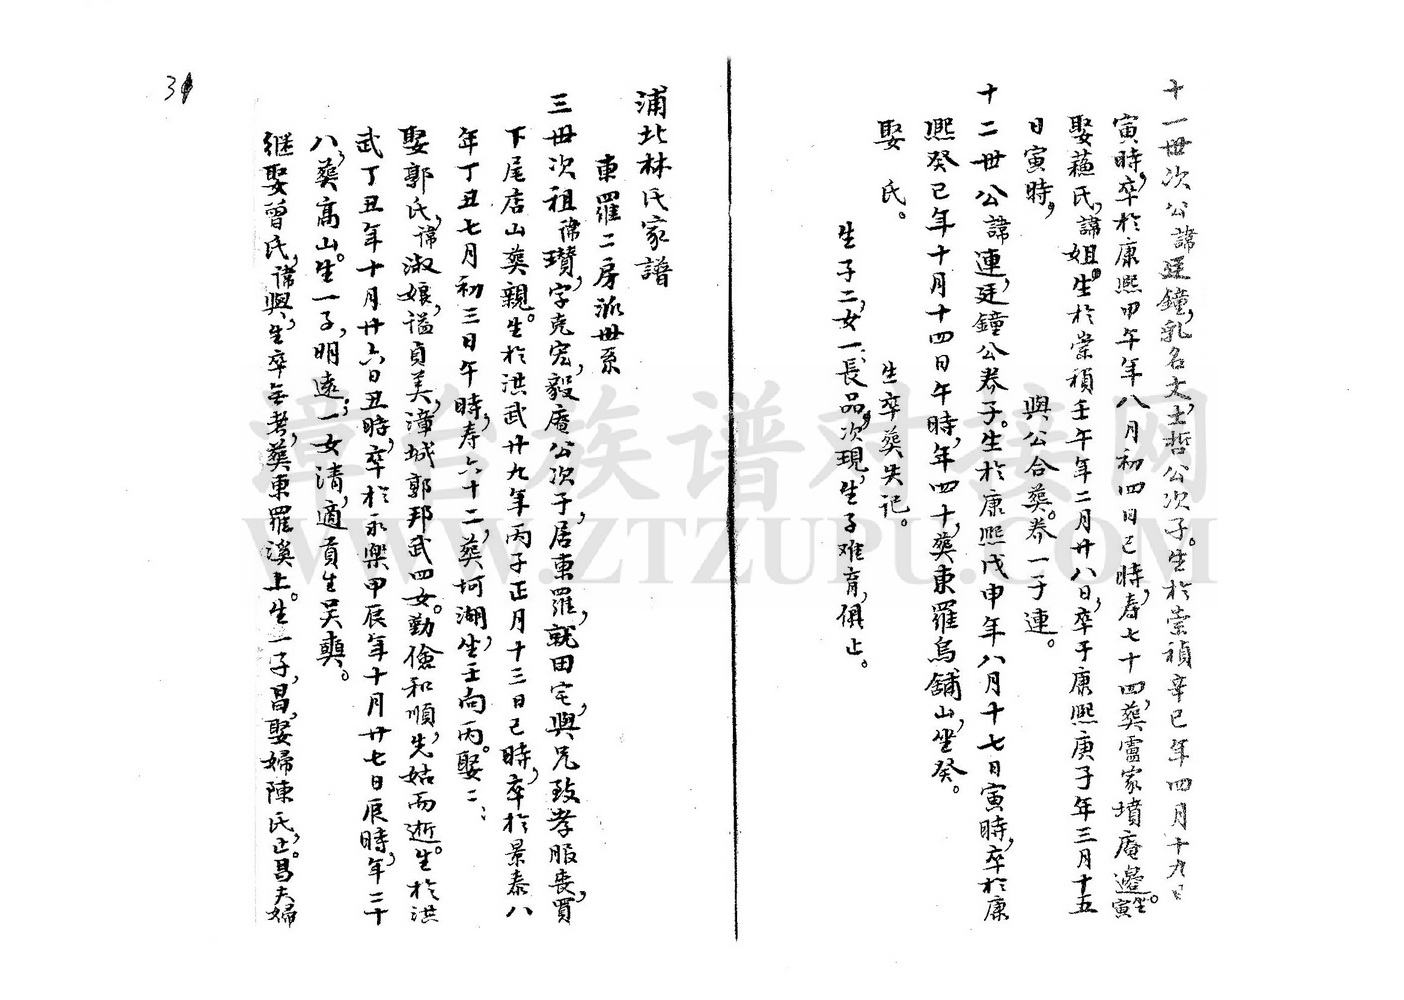 十一世次公諱廷鐘，乳名文，士哲公次子。生於崇禎辛巳年四月十九日
寅時，卒於康熙甲午年八月初四日巳時，寿七十四，葬盧家墳庵邊，坐寅。
娶蘓氏，諱姐，生於崇禎壬午年二月廿八日，卒于康熙庚子年三月十五
日寅時，與公合葬。养一子連。
十二世公諱連，廷鐘公养子。生於康熙戊申年八月十七日寅時，卒於康
熙癸巳年十月十四日午時，年四十，葬東羅烏鋪山，坐癸。
娶 氏。 生卒葬失记。
生子二，女一：長品，次現，生子难育，俱止。
浦北林氏家譜
東羅二房派世系
三世次祖諱瓚，字克宏，毅庵公次子，居東羅，就田宅，與兄致孝服丧，買
下尾店山葬親。生於洪武廿九年丙子正月十三日巳時，卒於景泰八
年丁丑七月初三日午時，寿六十二，葬坷湖，坐壬向丙。娶二：
娶郭氏，諱淑娘，謚貞美，漳城郭邦武四女。勤儉和順，先姑而逝。生於洪
武丁丑年十月廿六日丑時，卒於永樂甲辰年十月廿七日辰時，年二十
八，葬高山。生一子，明遠；一女清，適貢生吴奭。
继娶曾氏，諱興，生卒無考，葬東羅溪上。生一子，昌，娶婦陳氏，止。昌夫婦
31
章台族谱对接网
WWW.ZTZUPU.COM